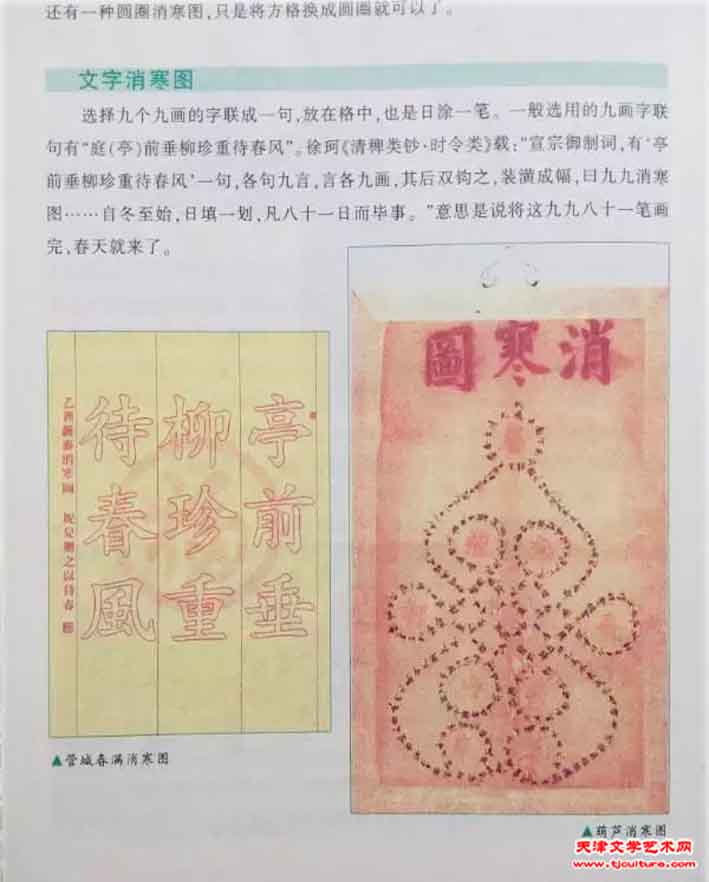 还有一种圆圈消寒图,只是将方格换成圆圈就可以了。
文字消寒图
选择九个九画的字联成一句,放在格中,也是日涂一笔。一般选用的九画字联
句有“庭(亭)前垂柳珍重待春风”。徐珂《清稗类钞·时令类》载:“宣宗御制词,有‘亭
前垂柳珍重待春风’一句,各句九言,言各九画,其后双钩之,装潢成幅,曰九九消寒
图……自冬至始,日填一划,凡八十一日而毕事。”意思是说将这九九八十一笔画
完,春天就来了。
亭前垂
柳珍重
待春風
消寒圖
▲管城春满消寒图
▲葫芦消寒图
天津文学艺术网
www.tjculture.com